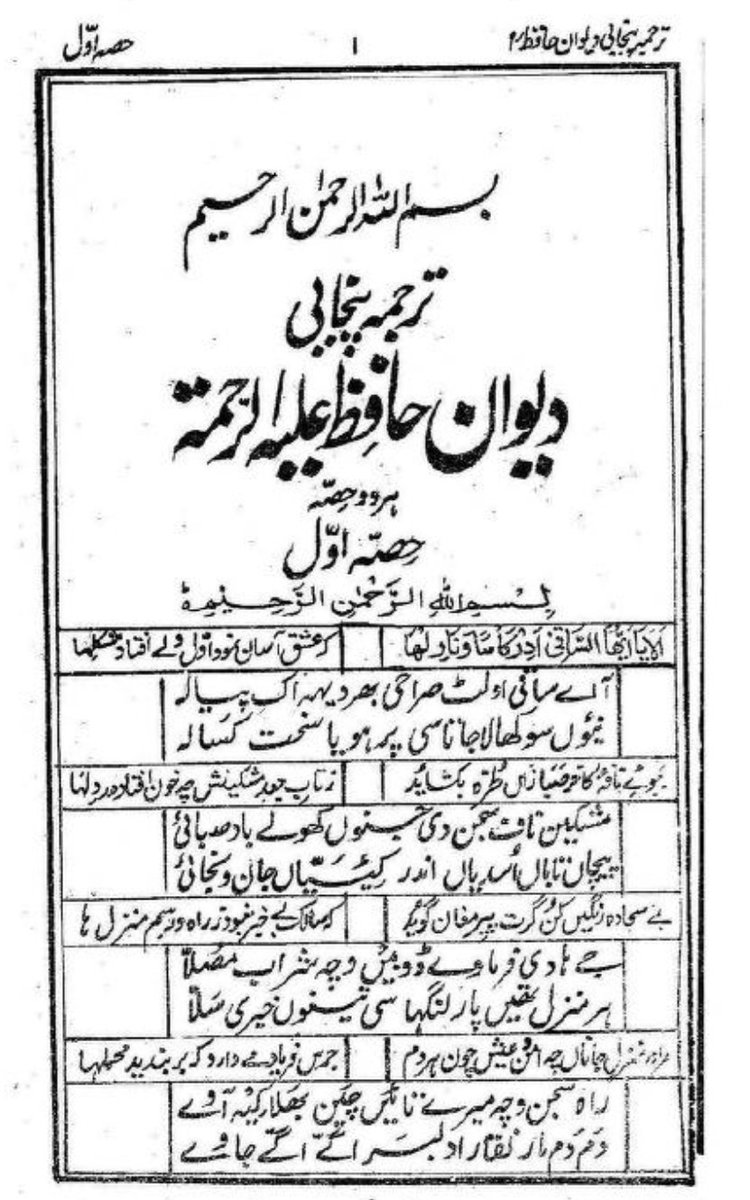 ترجمہ پنجابی دیوان حافظؒ ۱ حصہ اوّل
بسم اللہ الرحمٰن الرحیم
ترجمہ پنجابی
دیوان حافظ علیہ الرحمۃ
ہر دو حصّہ
حصّہ اوّل
بِسْمِ اللهِ الرَّحْمٰنِ الرَّحِيْمِ
الا یا ایھا الساقی ادر کاسا و ناولھا کہ عشق آسان نمود اوّل ولے افتاد مشکلہا
آ اے ساقی اولٹ صراحی بھر دیہہ اک پیالہ
نیوں سوکھالا جاتا سی پر ہویا سخت کسالہ
ببوئے نافۂ کآخر صبا زاں طرّہ بکشاید زتاب جعد مشکینش چہ خون افتاد در دلہا
مشکین نافت سجن دی جسنوں کھولے باد صبائی
پیچاں تاباں اُسدیاں اندر کیٔتیاں جان ونجائی
بمے سجادہ رنگیں کن گرت پیر مغان گوید کہ سالک بے خبر نبود ز راہ و رسم منزل ہا
جے ہادی فرماوے ڈوبیں وچہ شراب مصلّا
ہر منزل تھیں پار لنگھاسی تینوں خیری سلّا
مرا در منزل جاناں چہ امن و عیش چون ہر دم جرس فریاد مے دارد کہ بر بندید محملہا
راہ سجن وچہ میرے تائیں چین بھلا کیہ آوے
دم دم مار نقارا دلبر اگے اگے جاوے